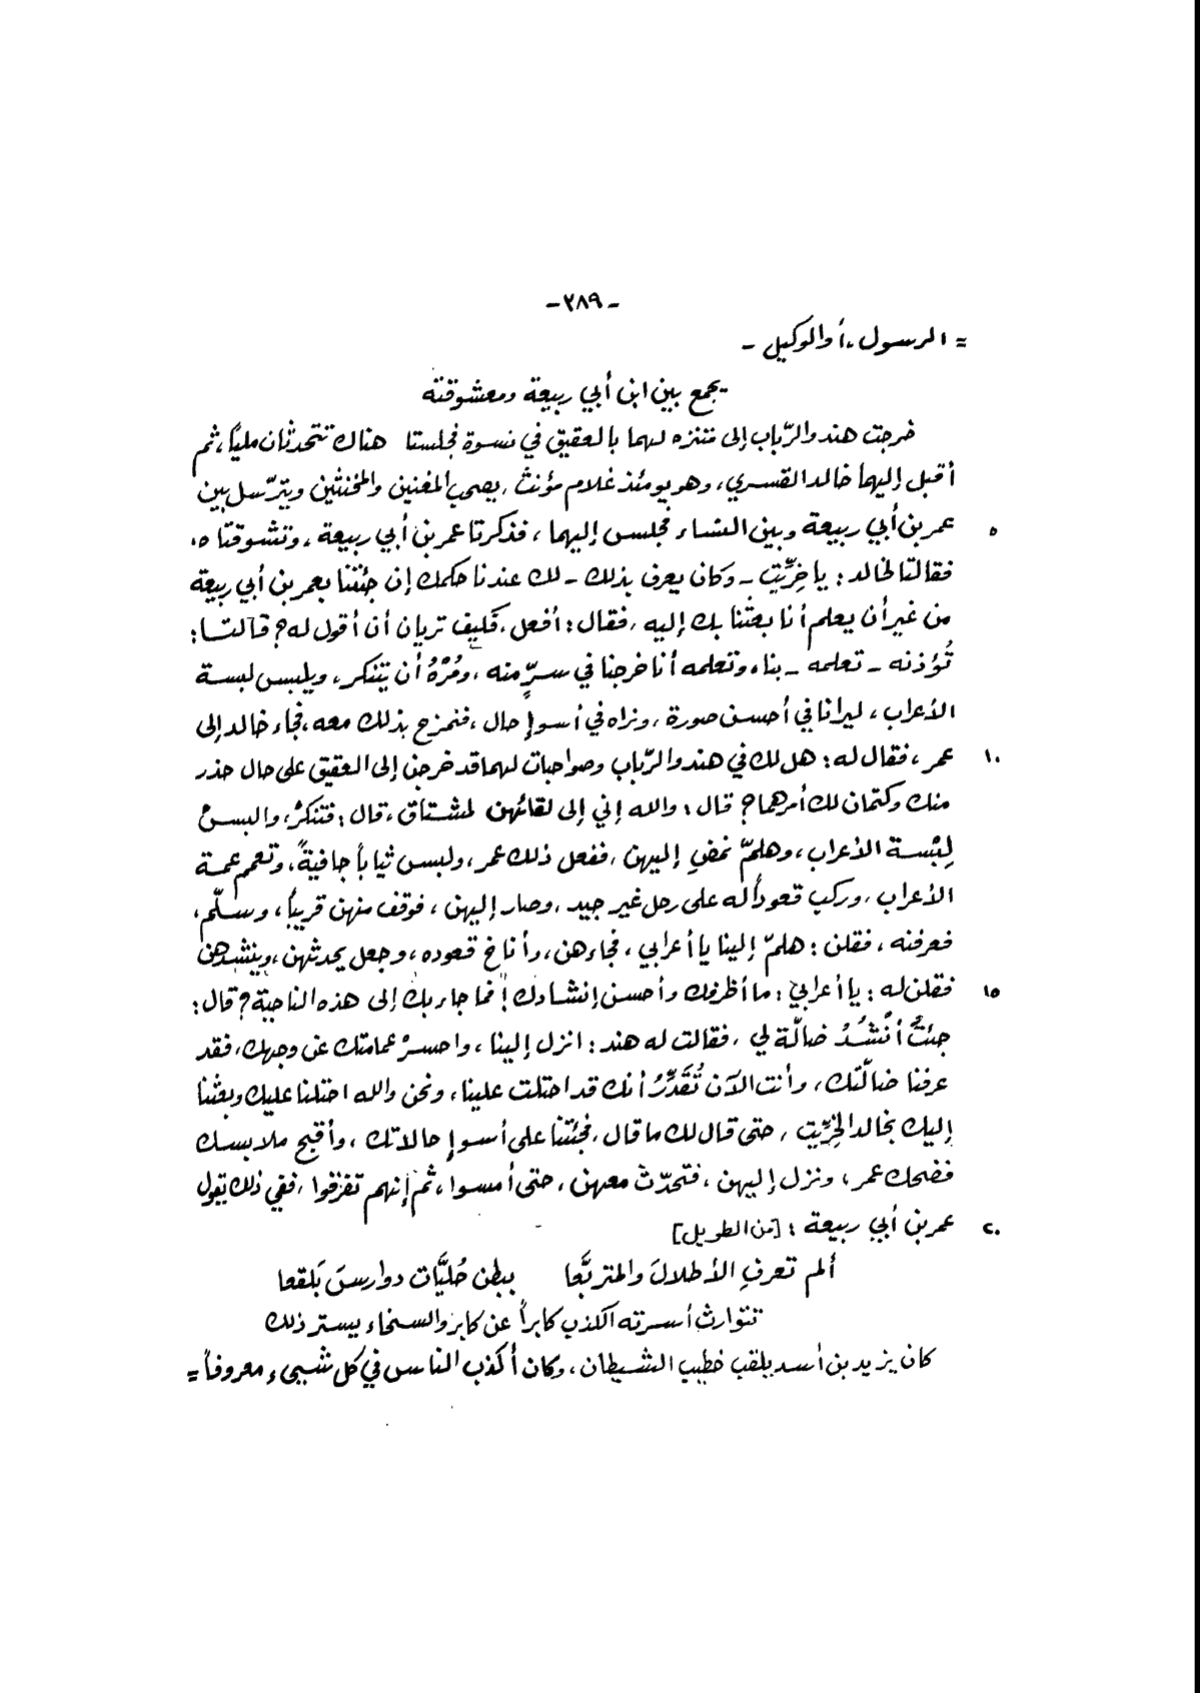 - ٢٨٩ -
= الرسول، أوالوكيل -
يجمع بين ابن أبي ربيعة ومعشوقته
خرجت هند والرّباب إلى متنزه لهما بالعقيق في نسوة فجلستا هناك تتحدثان مليًا، ثم
أقبل إليهما خالد القسري، وهو يومئذ غلام مؤنث، يصحب المغنين والمخنثين ويترسّل بين
عمر بن أبي ربيعة وبين النساء فجلس إليهما، فذكرتا عمر بن أبي ربيعة، وتشوقتاه، ٥
فقالتا لخالد: يا خِرِّيت - وكان يعرف بذلك - لك عندنا حكمك إن جئتنا بعمر بن أبي ربيعة
من غير أن يعلم أنا بعثنا بك إليه، فقال: أفعل، فكيف تريان أن أقول له؟ قالتا:
تُؤذنه - تعلمه - بنا، وتعلمه أنا خرجنا في سرٍّ منه، ومُرْهُ أن يتنكر، ويلبس لبسة
الأعراب، ليرانا في أحسن صورة، ونراه في أسوإ حال، فنمزح بذلك معه، فجاء خالد إلى
عمر، فقال له: هل لك في هند والرّباب وصواحبات لهما قد خرجن إلى العقيق على حال حذر ١٠
منك وكتمان لك أمرهما؟ قال: والله إني إلى لقائهن لمشتاق، قال: فتنكرْ، والبسْ
لِبْسة الأعراب، وهلمّ نمضِ إليهن، ففعل ذلك عمر، ولبس ثياباً جافيةً، وتعمم عمة
الأعراب، وركب قعوداً له على رحل غير جيد، وصار إليهن، فوقف منهن قريباً، وسلّم،
فعرفنه، فقلن: هلمّ إلينا يا أعرابي، فجاءهن، وأناخ قعوده، وجعل يحدثهن، وينشدهن
فقلن له: يا أعرابيّ: ما أظرفك وأحسن إنشادك! فما جاء بك إلى هذه الناحية؟ قال: ١٥
جئتُ أنْشُدُ ضالّة لي، فقالت له هند: انزل إلينا، واحسرْ عمامتك عن وجهك، فقد
عرفنا ضالّتك، وأنت الآن تُقَدِّرُ أنك قد احتلت علينا، ونحن والله احتلنا عليك وبعثنا
إليك بخالد الخِرِّيت، حتى قال لك ما قال، فجئتنا على أسوإ حالاتك، وأقبح ملابسك
فضحك عمر، ونزل إليهن، فتحدّث معهن، حتى أمسوا، ثم إنهم تفرقوا، ففي ذلك يقول
عمر بن أبي ربيعة: [من الطويل] ٢٠
ألم تعرفِ الأطلالَ والمتربَّعا ببطن حُليَّات دوارسَ بَلقعا
تتوارث أسرته الكذب كابراً عن كابر والسخاء يستر ذلك
كان يزيد بن أسد يلقب خطيب الشيطان، وكان أكذب الناس في كل شيىء معروفاً =